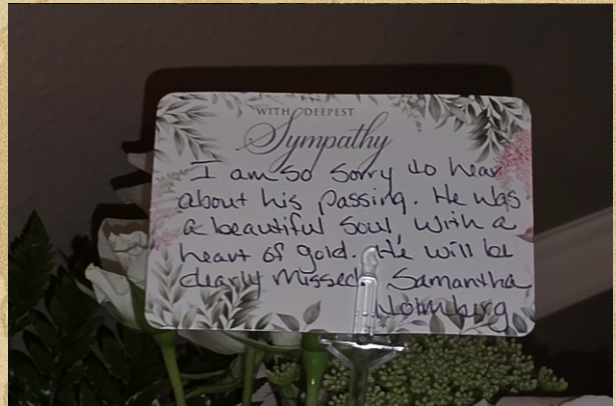 WITH DEEPEST
Sympathy
I am so sorry to hear
about his passing. He was
a beautiful soul, with a
heart of gold. He will be
dearly missed Samantha